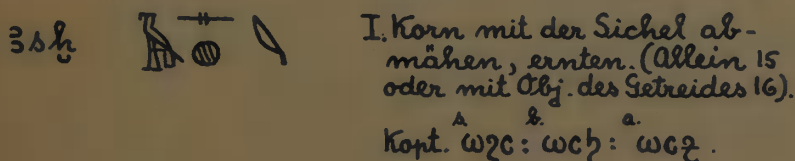 ꜣsḫ 𓄿𓋴𓐍𓌳 I. Korn mit der Sichel ab-
mähen, ernten. (Allein 15
oder mit Obj. des Getreides 16).
s. b. a.
Kopt. ⲱϩⲥ : ⲱⲥϧ : ⲱⲥϩ .